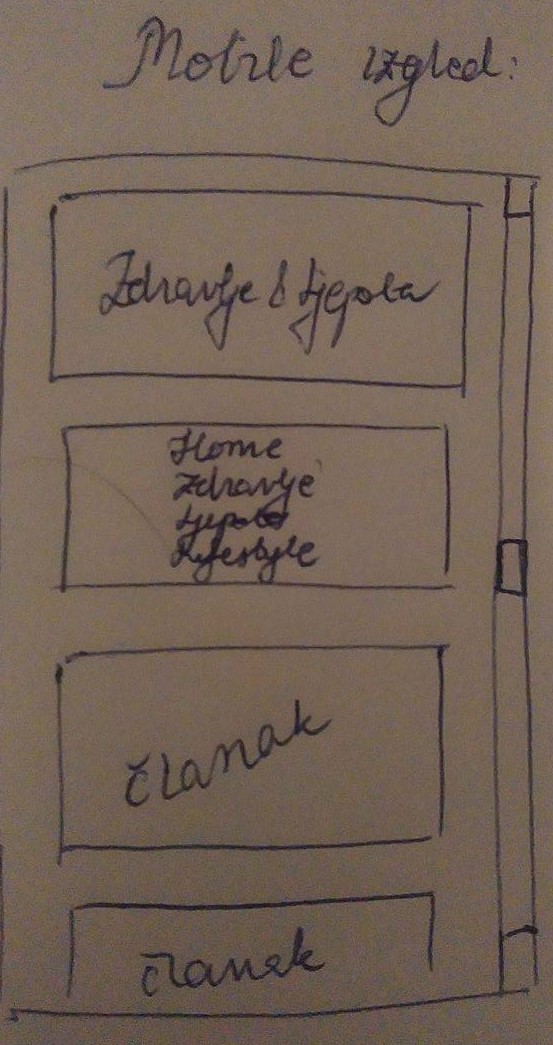 Mobile izgled:
Zdravlje & Ljepota
Home
Zdravlje
Ljepota
Lifestyle
članak
članak